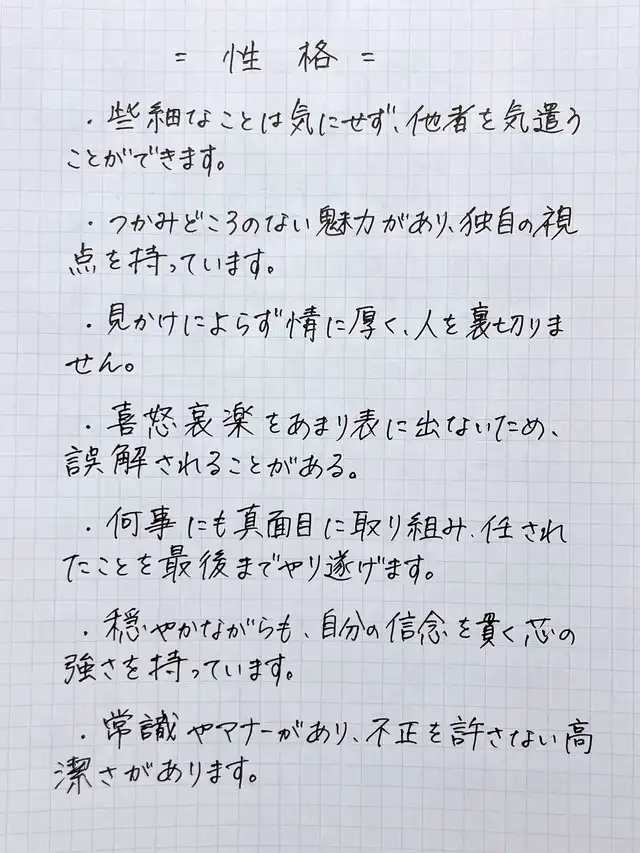 = 性 格 =
・些細なことは気にせず、他者を気遣う
ことができます。
・つかみどころのない魅力があり、独自の視
点を持っています。
・見かけによらず情に厚く、人を裏切りま
せん。
・喜怒哀楽をあまり表に出ないため、
誤解されることがある。
・何事にも真面目に取り組み、任され
たことを最後までやり遂げます。
・穏やかながらも、自分の信念を貫く芯の
強さを持っています。
・常識やマナーがあり、不正を許さない高
潔さがあります。